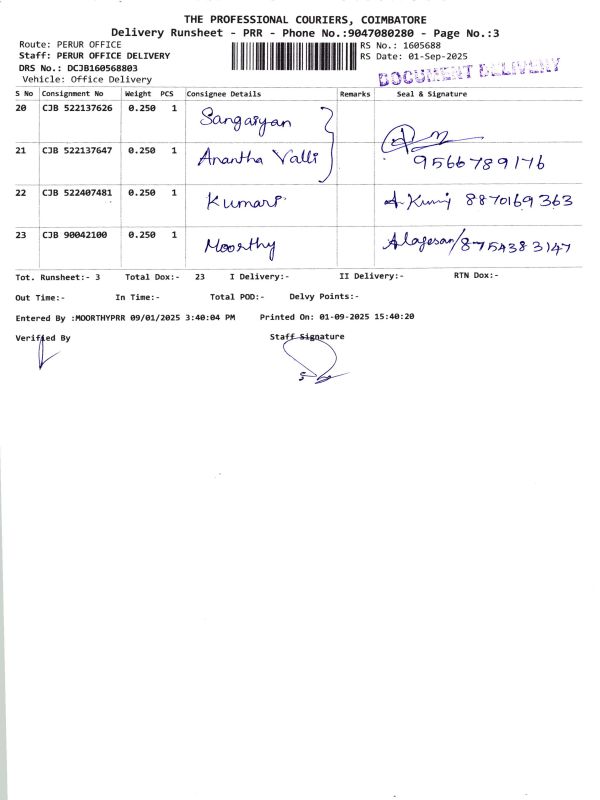 THE PROFESSIONAL COURIERS, COIMBATORE
Delivery Runsheet - PRR - Phone No.:9047080280 - Page No.:3
Route: PERUR OFFICE RS No.: 1605688
Staff: PERUR OFFICE DELIVERY RS Date: 01-Sep-2025
DRS No.: DCJB160568803
Vehicle: Office Delivery
DOCUMENT DELIVERY
S No Consignment No Weight PCS Consignee Details Remarks Seal & Signature
20 CJB 522137626 0.250 1 Sangaiyan
21 CJB 522137647 0.250 1 Anantha Valli 9566789176
22 CJB 522407481 0.250 1 Kumari 8870169363
23 CJB 90042100 0.250 1 Moorthy Alagesan/8754383147
Tot. Runsheet:- 3 Total Dox:- 23 I Delivery:- II Delivery:- RTN Dox:-
Out Time:- In Time:- Total POD:- Delvy Points:-
Entered By :MOORTHYPRR 09/01/2025 3:40:04 PM Printed On: 01-09-2025 15:40:20
Verified By Staff Signature